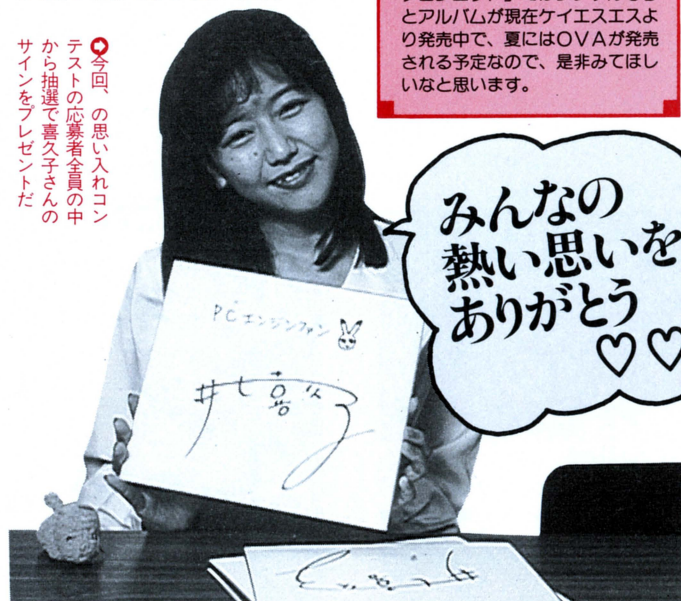 とアルバムが現在ケイエスエスよ
り発売中で、夏にはOVAが発売
される予定なので、是非みてほし
いなと思います。
今回、の思い入れコン
テストの応募者全員の中
から抽選で喜久子さんの
サインをプレゼントだ
みんなの
熱い思いを
ありがとう
♡♡
PCエンジンファン
井上喜久子